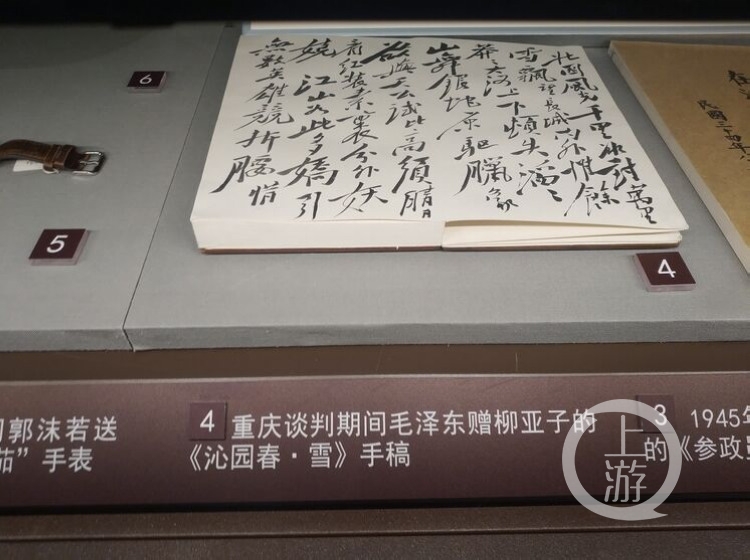 北國風光千里冰封萬里
雪飄望長城内外惟餘
莽莽大河上下頓失滔滔
山舞銀蛇原驅臘象
欲與天公試比高須晴日
看紅裝素裹分外妖
嬈 江山如此多嬌引
無數英雄競折腰惜
民國三十四年
6
5
4
郭沫若送
茄”手表
4 重庆谈判期间毛泽东赠柳亚子的
《沁园春·雪》手稿
3 1945年
的《参政
上游